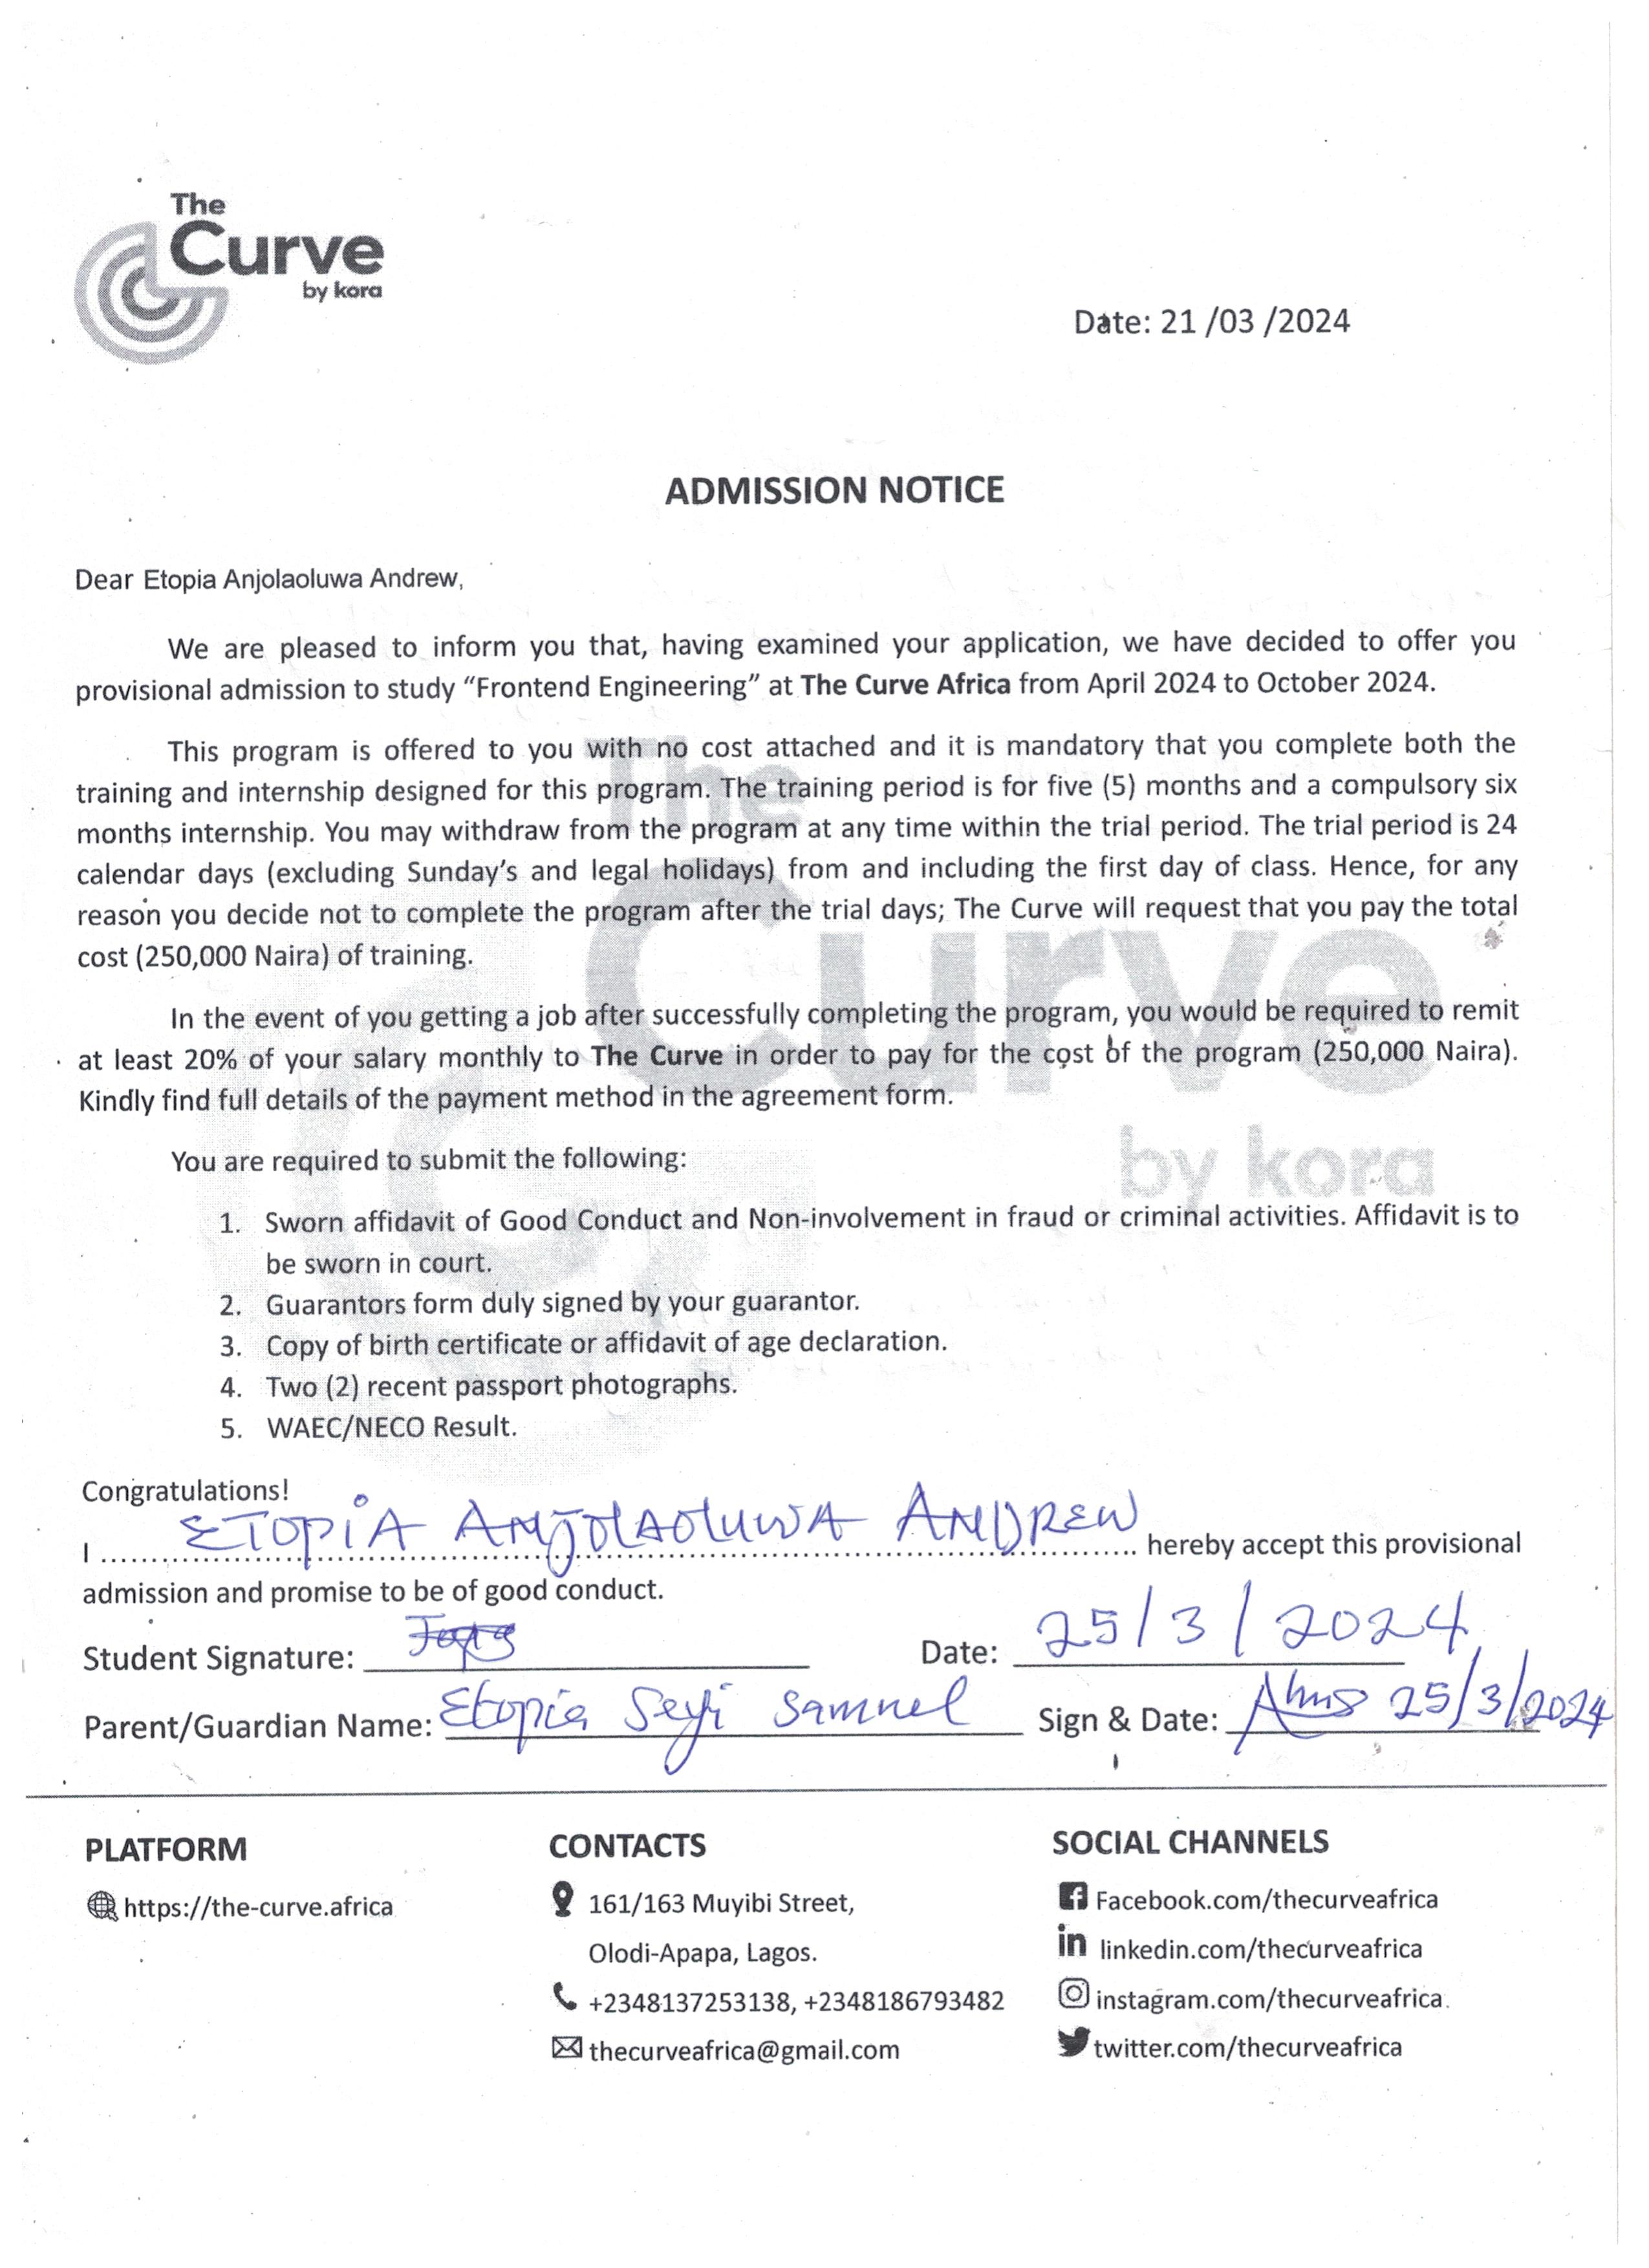 The
Curve
by kora
Date: 21 /03 /2024
ADMISSION NOTICE
Dear Etopia Anjolaoluwa Andrew,
We are pleased to inform you that, having examined your application, we have decided to offer you
provisional admission to study “Frontend Engineering” at The Curve Africa from April 2024 to October 2024.
This program is offered to you with no cost attached and it is mandatory that you complete both the
training and internship designed for this program. The training period is for five (5) months and a compulsory six
months internship. You may withdraw from the program at any time within the trial period. The trial period is 24
calendar days (excluding Sunday’s and legal holidays) from and including the first day of class. Hence, for any
reason you decide not to complete the program after the trial days; The Curve will request that you pay the total
cost (250,000 Naira) of training.
In the event of you getting a job after successfully completing the program, you would be required to remit
at least 20% of your salary monthly to The Curve in order to pay for the cost of the program (250,000 Naira).
Kindly find full details of the payment method in the agreement form.
You are required to submit the following:
1. Sworn affidavit of Good Conduct and Non-involvement in fraud or criminal activities. Affidavit is to
be sworn in court.
2. Guarantors form duly signed by your guarantor.
3. Copy of birth certificate or affidavit of age declaration.
4. Two (2) recent passport photographs.
5. WAEC/NECO Result.
The
Curve
by kora
Congratulations!
I ETOPIA ANJOLAOLUWA ANDREW hereby accept this provisional
admission and promise to be of good conduct.
Student Signature: Date: 25/3/2024
Parent/Guardian Name: Etopia Seyi Samuel Sign & Date: 25/3/2024
PLATFORM
https://the-curve.africa
CONTACTS
161/163 Muyibi Street,
Olodi-Apapa, Lagos.
+2348137253138, +2348186793482
thecurveafrica@gmail.com
SOCIAL CHANNELS
Facebook.com/thecurveafrica
linkedin.com/thecurveafrica
instagram.com/thecurveafrica
twitter.com/thecurveafrica